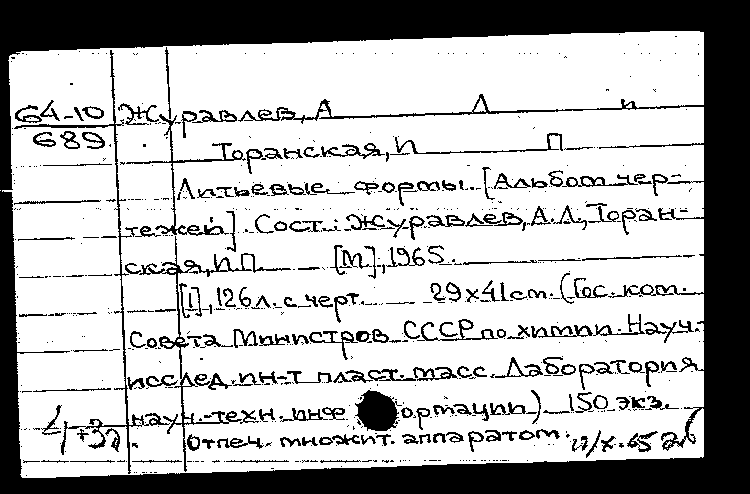 64-10 Журавлев, А Л и
689 Торанская, И П
Литьевые формы. [Альбом чер-
тежей]. Сост.: Журавлев, А.Л., Торан-
ская, И.П. [М], 1965.
[1], 126л. с черт. 29х41cm. (Гос. ком.
Совета Министров СССР по химии. Науч.-
исслед. ин-т пласт. масс. Лаборатория
науч.-техн. информации). 150 экз.
Отпеч. множит. аппаратом.